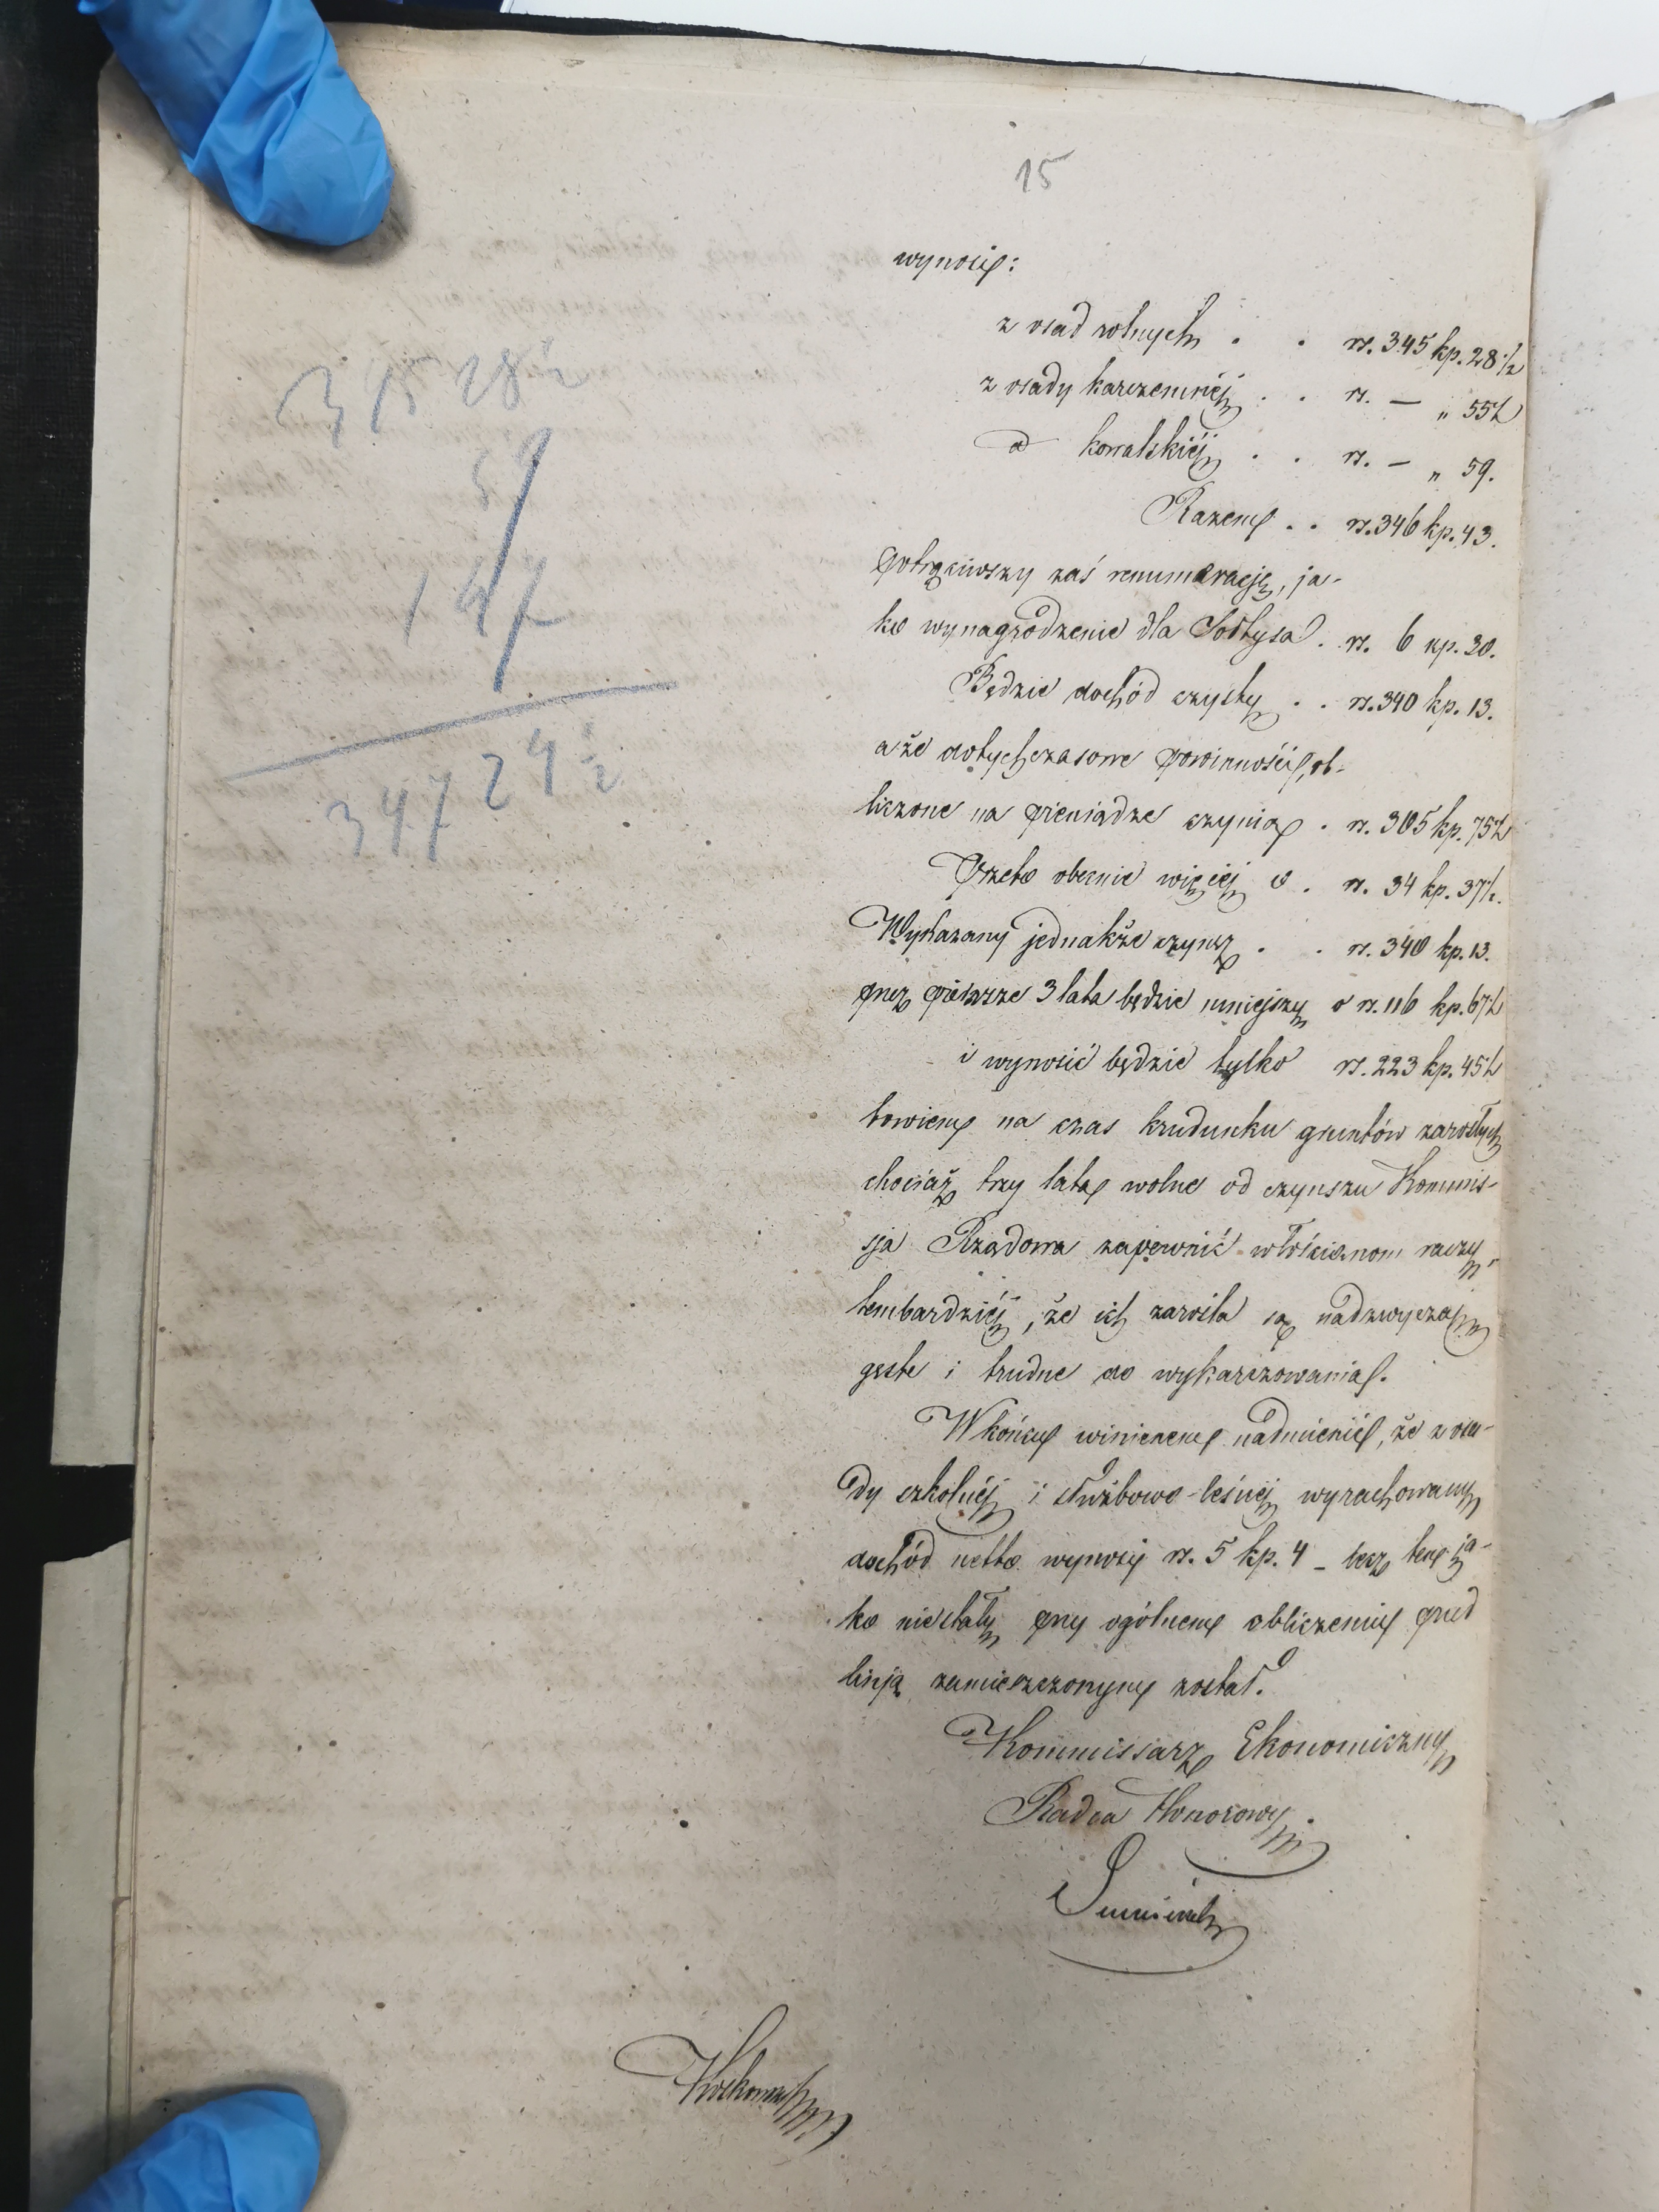 15
wynosi:
z osad rolnych . . rs. 345 kp. 28 1/2
z osady karczemnéj . . rs. — „ 55 1/2
d kowalskiéj . . rs. — „ 59.
Razem . . rs. 346 kp. 43.
potrąciwszy zaś renumerację, ja-
ko wynagrodzenie dla Sołtysa . rs. 6 kp. 30.
Będzie dochód czysty . . rs. 340 kp. 13.
a że dotychczasowe powinności, ob-
liczone na pieniądze czynią . rs. 305 kp. 75 1/2
Przeto obecnie więcéj o . rs. 34 kp. 37 1/2.
Wykazany jednakże czynsz . . rs. 340 kp. 13.
przez pierwsze 3 lata będzie mniejszy o rs. 116 kp. 67 1/2
i wynosić będzie tylko rs. 223 kp. 45 1/2
bowiem na czas krudunku gruntów zarosłych
chociaż trzy lata wolne od czynszu Kommis-
sja Rządowa zapewnić włościanom raczy,
tembardziéj, że ich zarosła są nadzwyczaj
gęste i trudne do wykarczowania.
W końcu winienem nadmienić, że z osa-
dy szkolnéj i służbowo-leśnéj wyrachowany
dochód netto wynosi rs. 5 kp. 4 - lecz ten ja-
ko niestały przy ogólnem obliczeniu przed
linją zamieszczonym został.
Kommissarz Ekonomiczny
Radca Honorowy
345 28 1/2
59
1 47
347 29 1/2